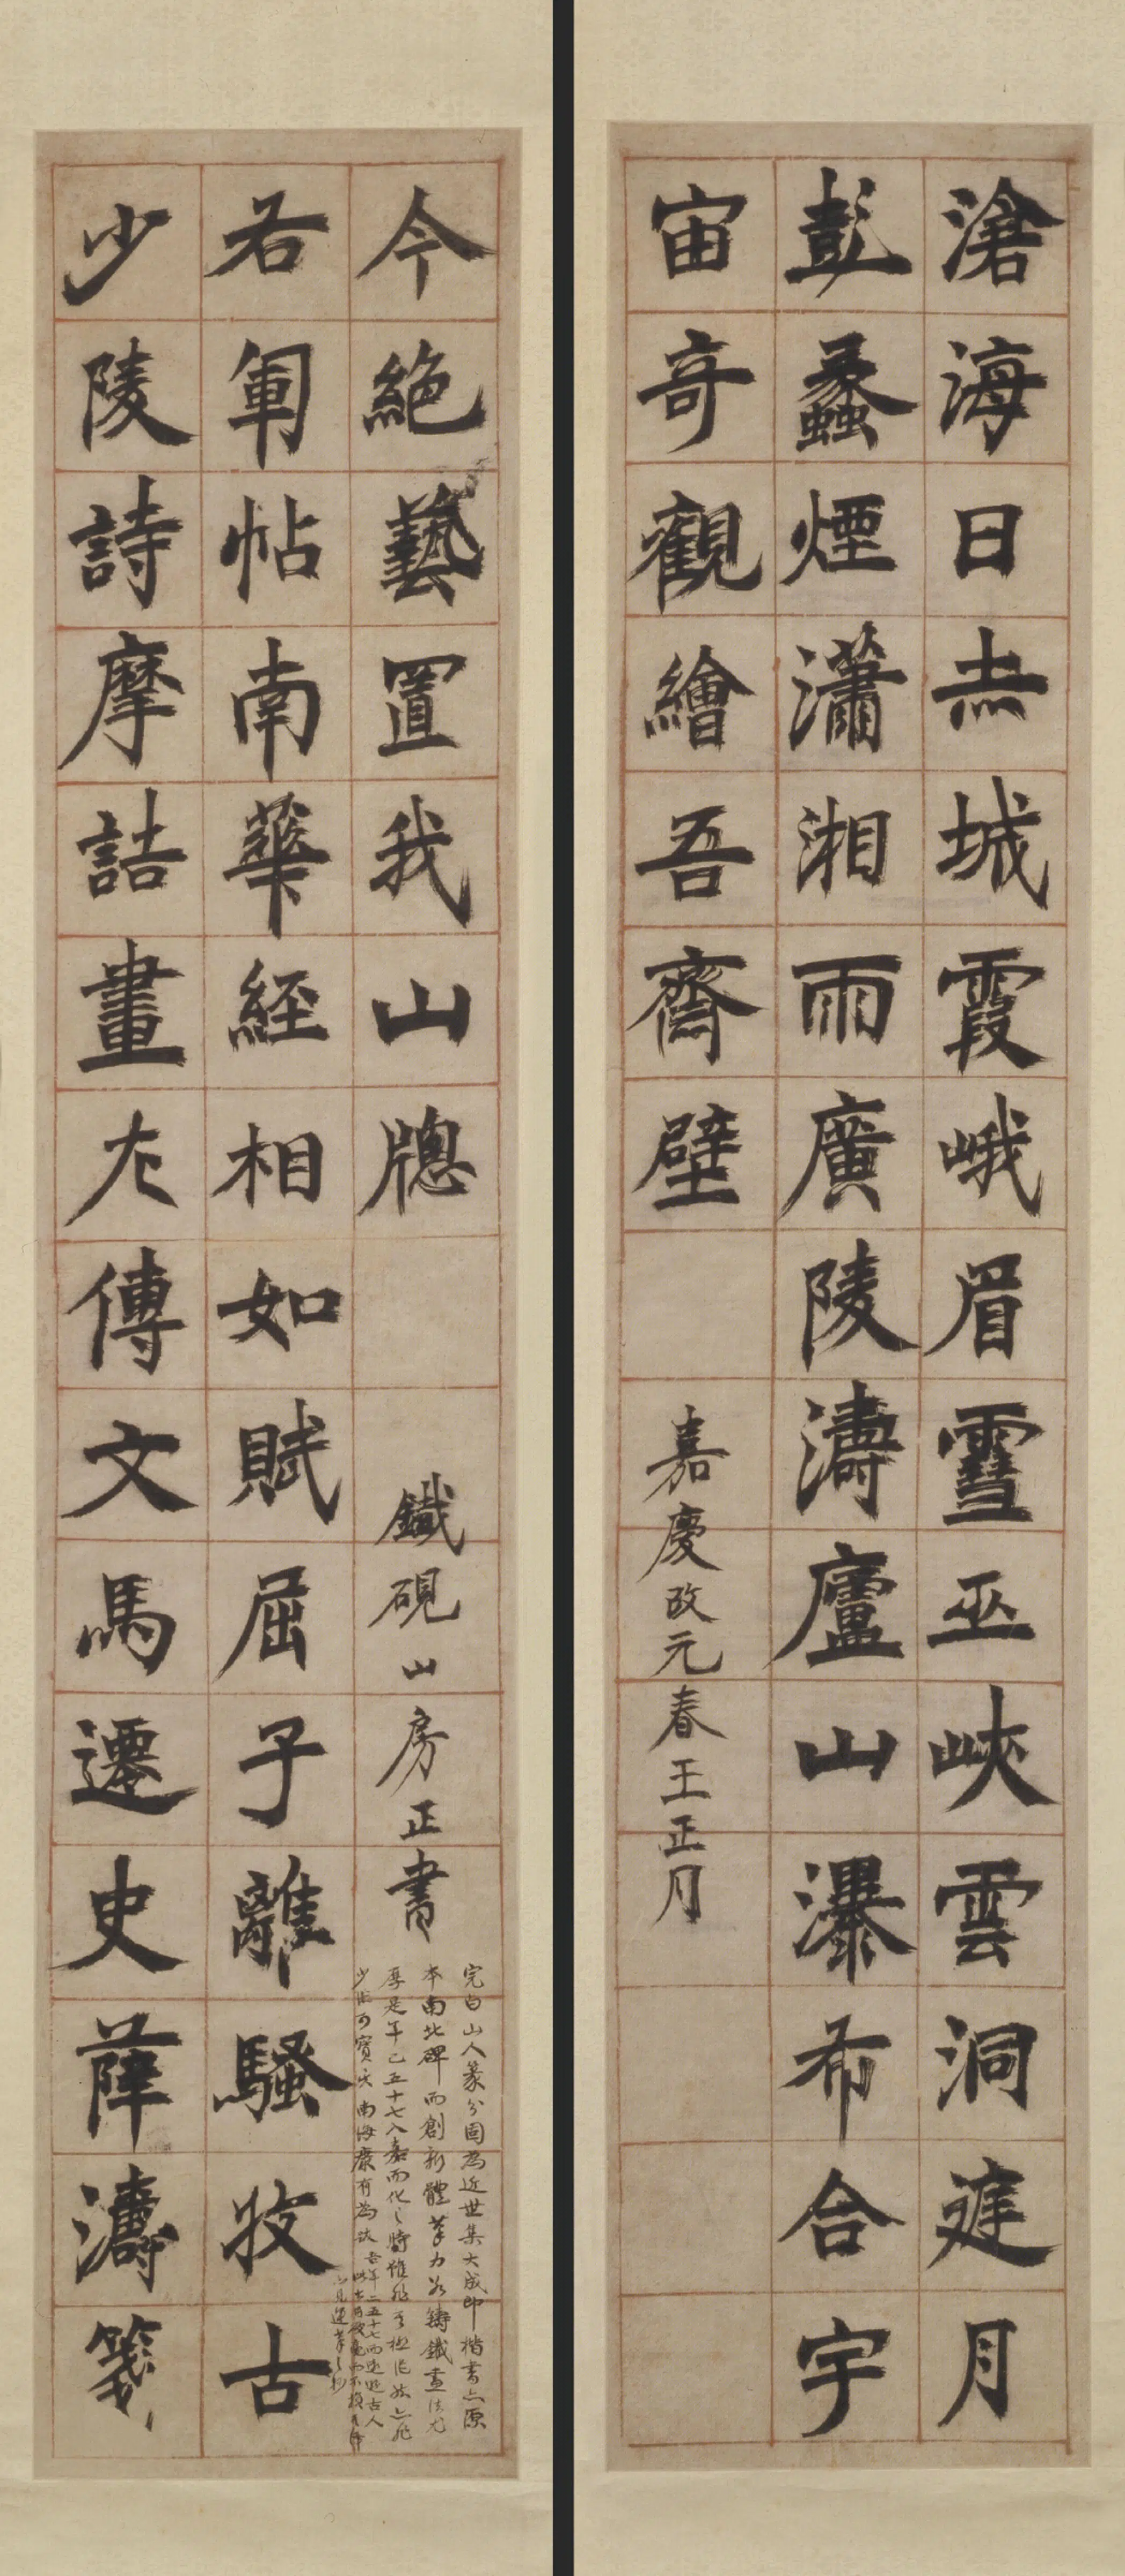 滄海日赤城霞峨眉雪巫峽雲洞庭月
彭蠡煙瀟湘雨廣陵濤廬山瀑布合宇
宙奇觀繪吾齋壁
嘉慶改元春王正月
少陵詩摩詰畫左傳文馬遷史薛濤箋
右軍帖南華經相如賦屈子離騷收古
今絕藝置我山牕
鐵硯山房正書
完白山人篆分固為近世集大成即楷書亦原
本南北碑而創新體筆力若鑄鐵畫法尤
厚是年已五十七入而化之時
少作可寶矣南海康有為跋